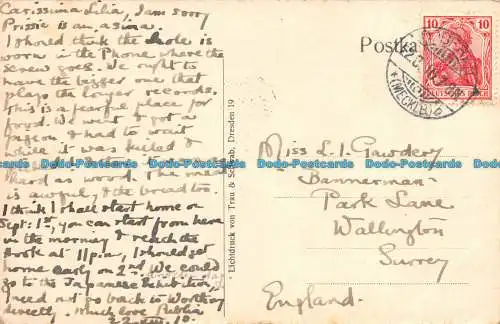 Carissima Lilia, I am sorry
Prissie is an asina.
I should think the hole is
worn in the Phone, where the
screws goes. We ought to
have the bigger one that
plays the longer records.
This is a fearful place for
food. We went & got a
pigeon & had to wait
while it was killed &
hard as wood. The meat
is awful, & the bread too.
I think I shall start home on
Sept. 1st, you can start from here
in the morning & reach the
Hook at 11 p.m., I should get
home early on 2nd. We could
go to the Japanese Exhibition,
I need not go back to Worthing
directly. Much love Publia
Postka
10 10
DEUTSCHES REICH
(MECKLB)
Lichtdruck von Trau & Schwab, Dresden 19
Miss L. I. Gowdery
Bannerman
Park Lane
Wallington
Surrey
England.
Bobs-Postcards Bobs-Postcards Bobs-Postcards Bobs-Postcards